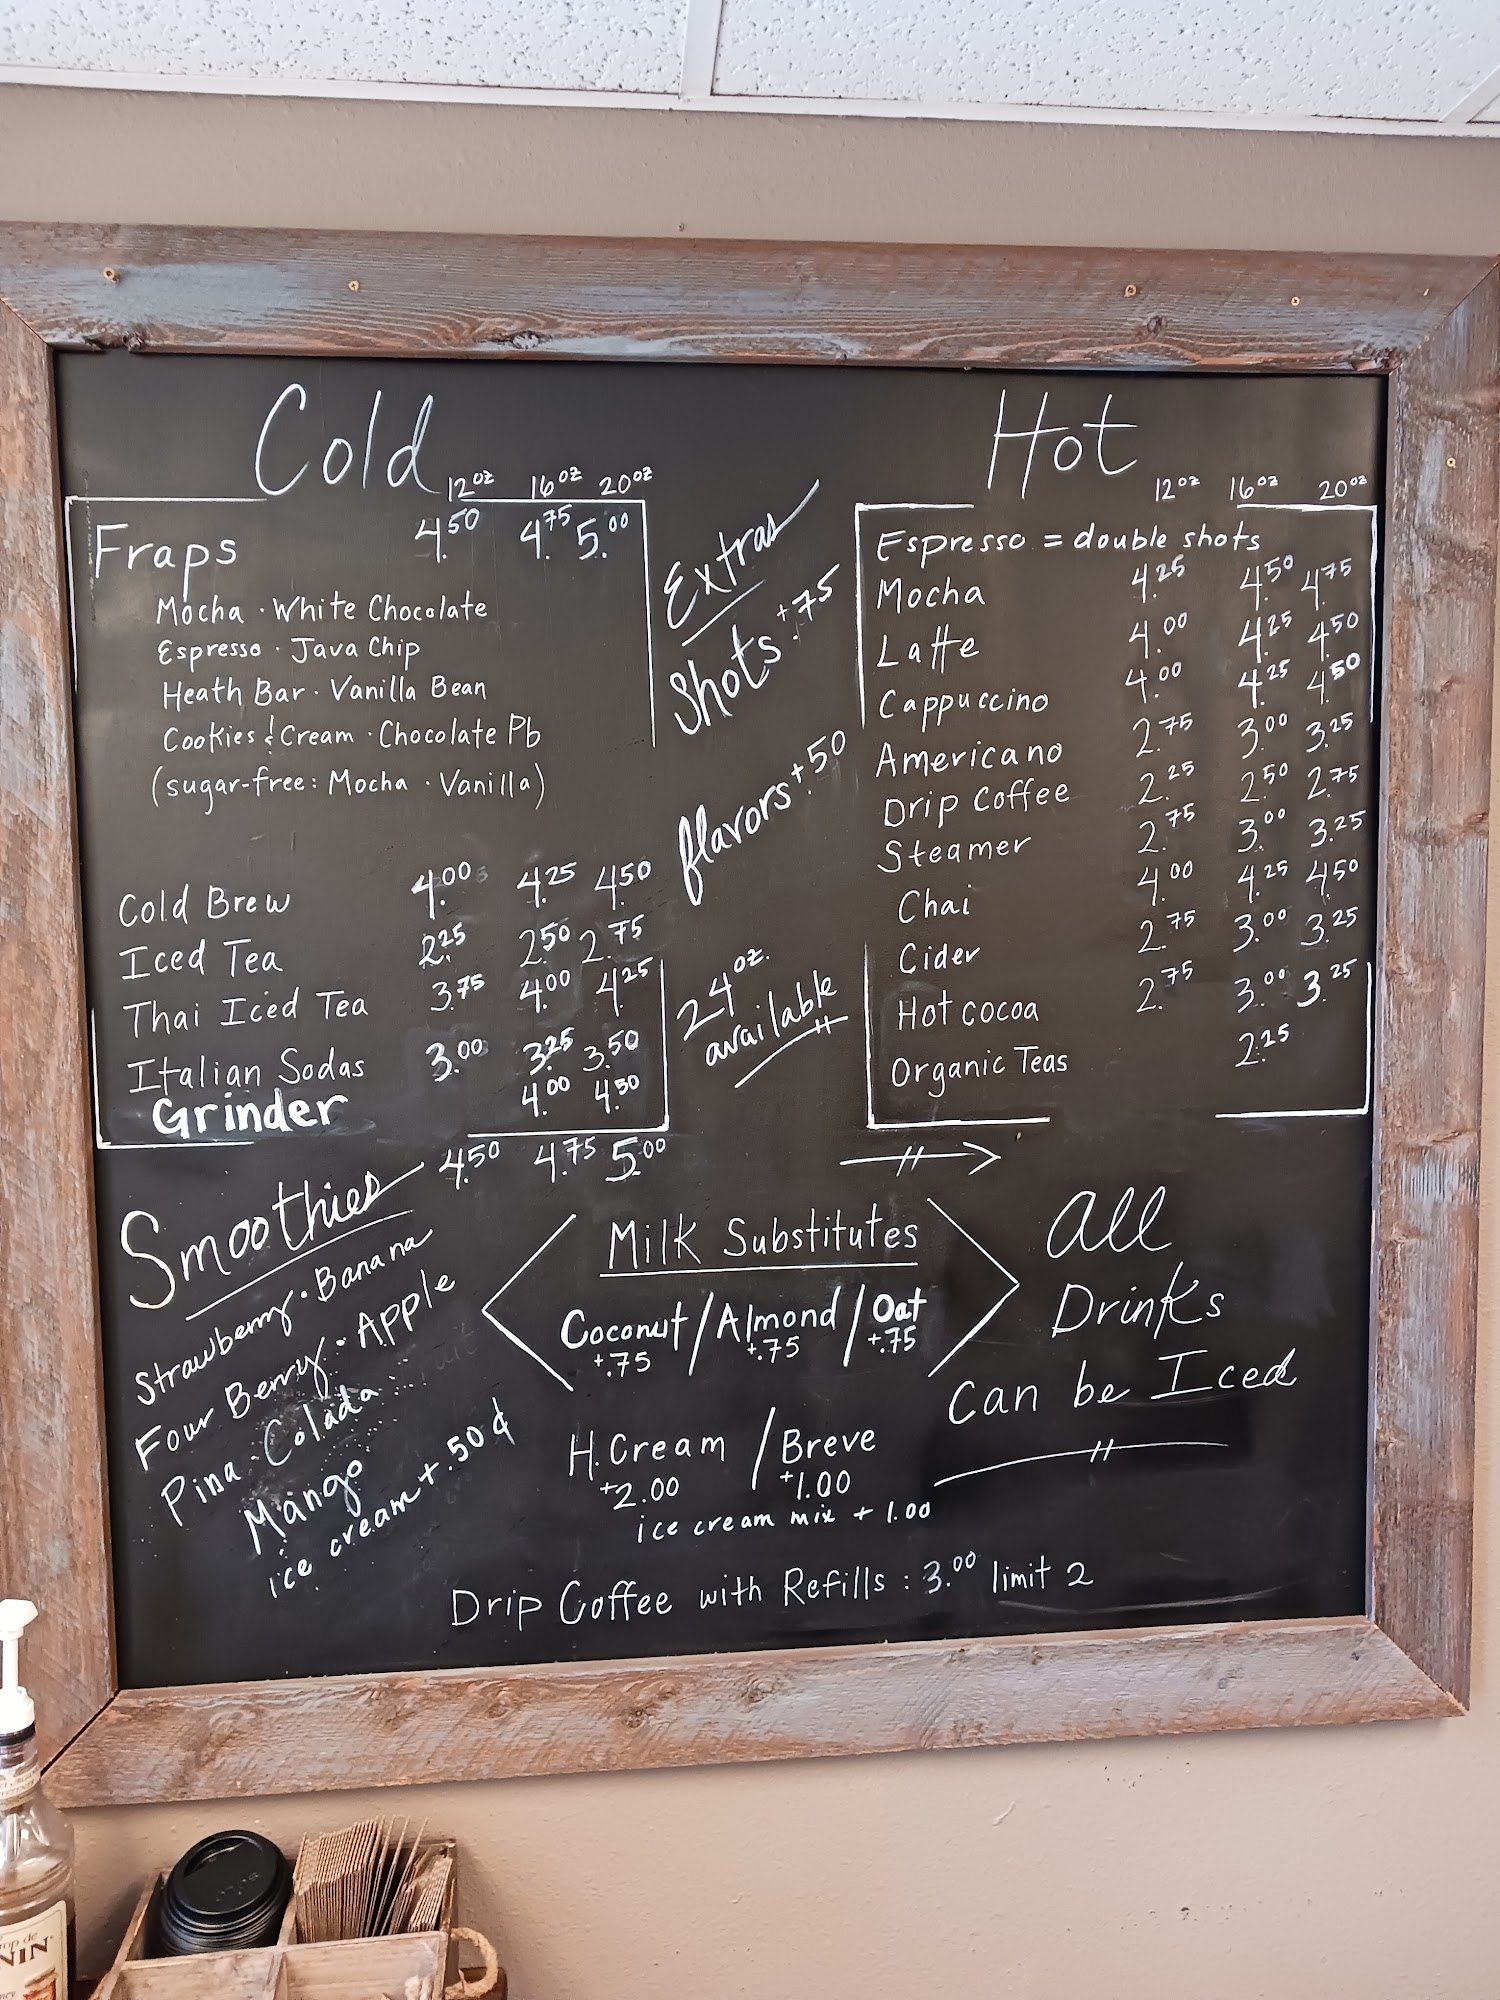 Cold
12oz 16oz 20oz
Fraps 4.50 4.75 5.00
Mocha · White Chocolate
Espresso · Java Chip
Heath Bar · Vanilla Bean
Cookies & Cream · Chocolate Pb
(sugar-free: Mocha · Vanilla)
Cold Brew 4.00 4.25 4.50
Iced Tea 2.25 2.50 2.75
Thai Iced Tea 3.75 4.00 4.25
Italian Sodas 3.00 3.25 3.50
Grinder 4.00 4.50
Smoothies 4.50 4.75 5.00
Strawberry · Banana
Four Berry · Apple
Pina · Colada
Mango
ice cream + .50¢
Extras
Shots +.75
flavors +.50
24oz.
available
Hot
12oz 16oz 20oz
Espresso = double shots
Mocha 4.25 4.50 4.75
Latte 4.00 4.25 4.50
Cappuccino 4.00 4.25 4.50
Americano 2.75 3.00 3.25
Drip Coffee 2.25 2.50 2.75
Steamer 2.75 3.00 3.25
Chai 4.00 4.25 4.50
Cider 2.75 3.00 3.25
Hot cocoa 2.75 3.00 3.25
Organic Teas 2.25
Milk Substitutes
Coconut / Almond / Oat
+.75 +.75 +.75
H. Cream / Breve
+2.00 +1.00
ice cream mix + 1.00
All
Drinks
can be Iced
Drip Coffee with Refills : 3.00 limit 2